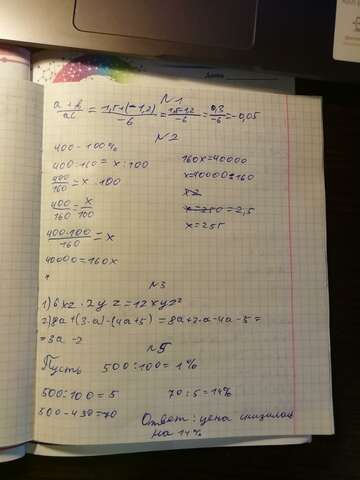 N1
a+b/ac = 1,5+(-1,2)/-6 = 1,5-1,2/-6 = 0,3/-6 = -0,05
N2
400 - 100%
400:160 = x:100
400/160 = x:100
400/160 = x/100
400·100/160 = x
40000=160x
160x=40000
x=40000:160
x=250=2,5
x=255
N3
1) 6xz · 2yz = 12xyz²
2) 8a+(3-a)-(4a+5) = 8a+3-a-4a-5 =
= 3a-2
N5
Пусть 500:100=1%
500:100=5
70:5=14%
500-430=70
Ответ: цена снизилась
на 14%